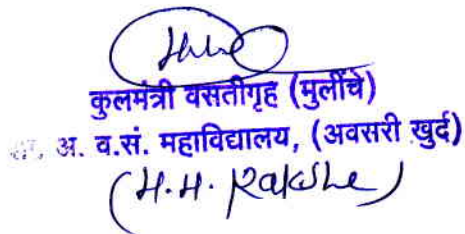 कुलमंत्री वसतीगृह (मुलींचे)
अ. व.सं. महाविद्यालय, (अवसरी खुर्द)
(H.H. Rakshe)